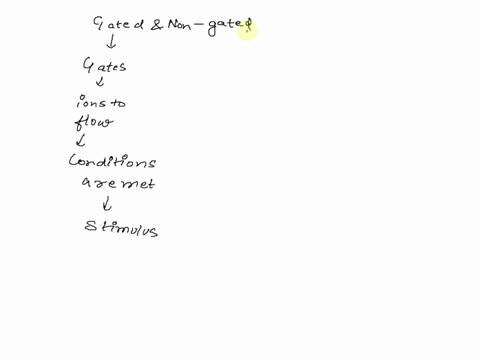 Gated & Non-gated
↓
Gates
↓
ions to
flow
↓
Conditions
are met
↓
Stimulus